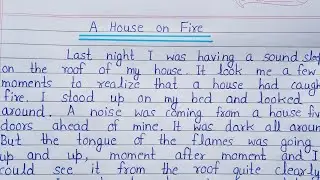 A House on Fire
Last night I was having a sound slee
on the roof of my house. It look me a few
moments to realize that a house had caugh
fire. I stood up on my bed and looked
around. A noise was coming from a house fiv
doors ahead of mine. It was dark all aroun
But the tongue of the flames was going
up and up, moment after moment and I
could see it from the roof quite clearly